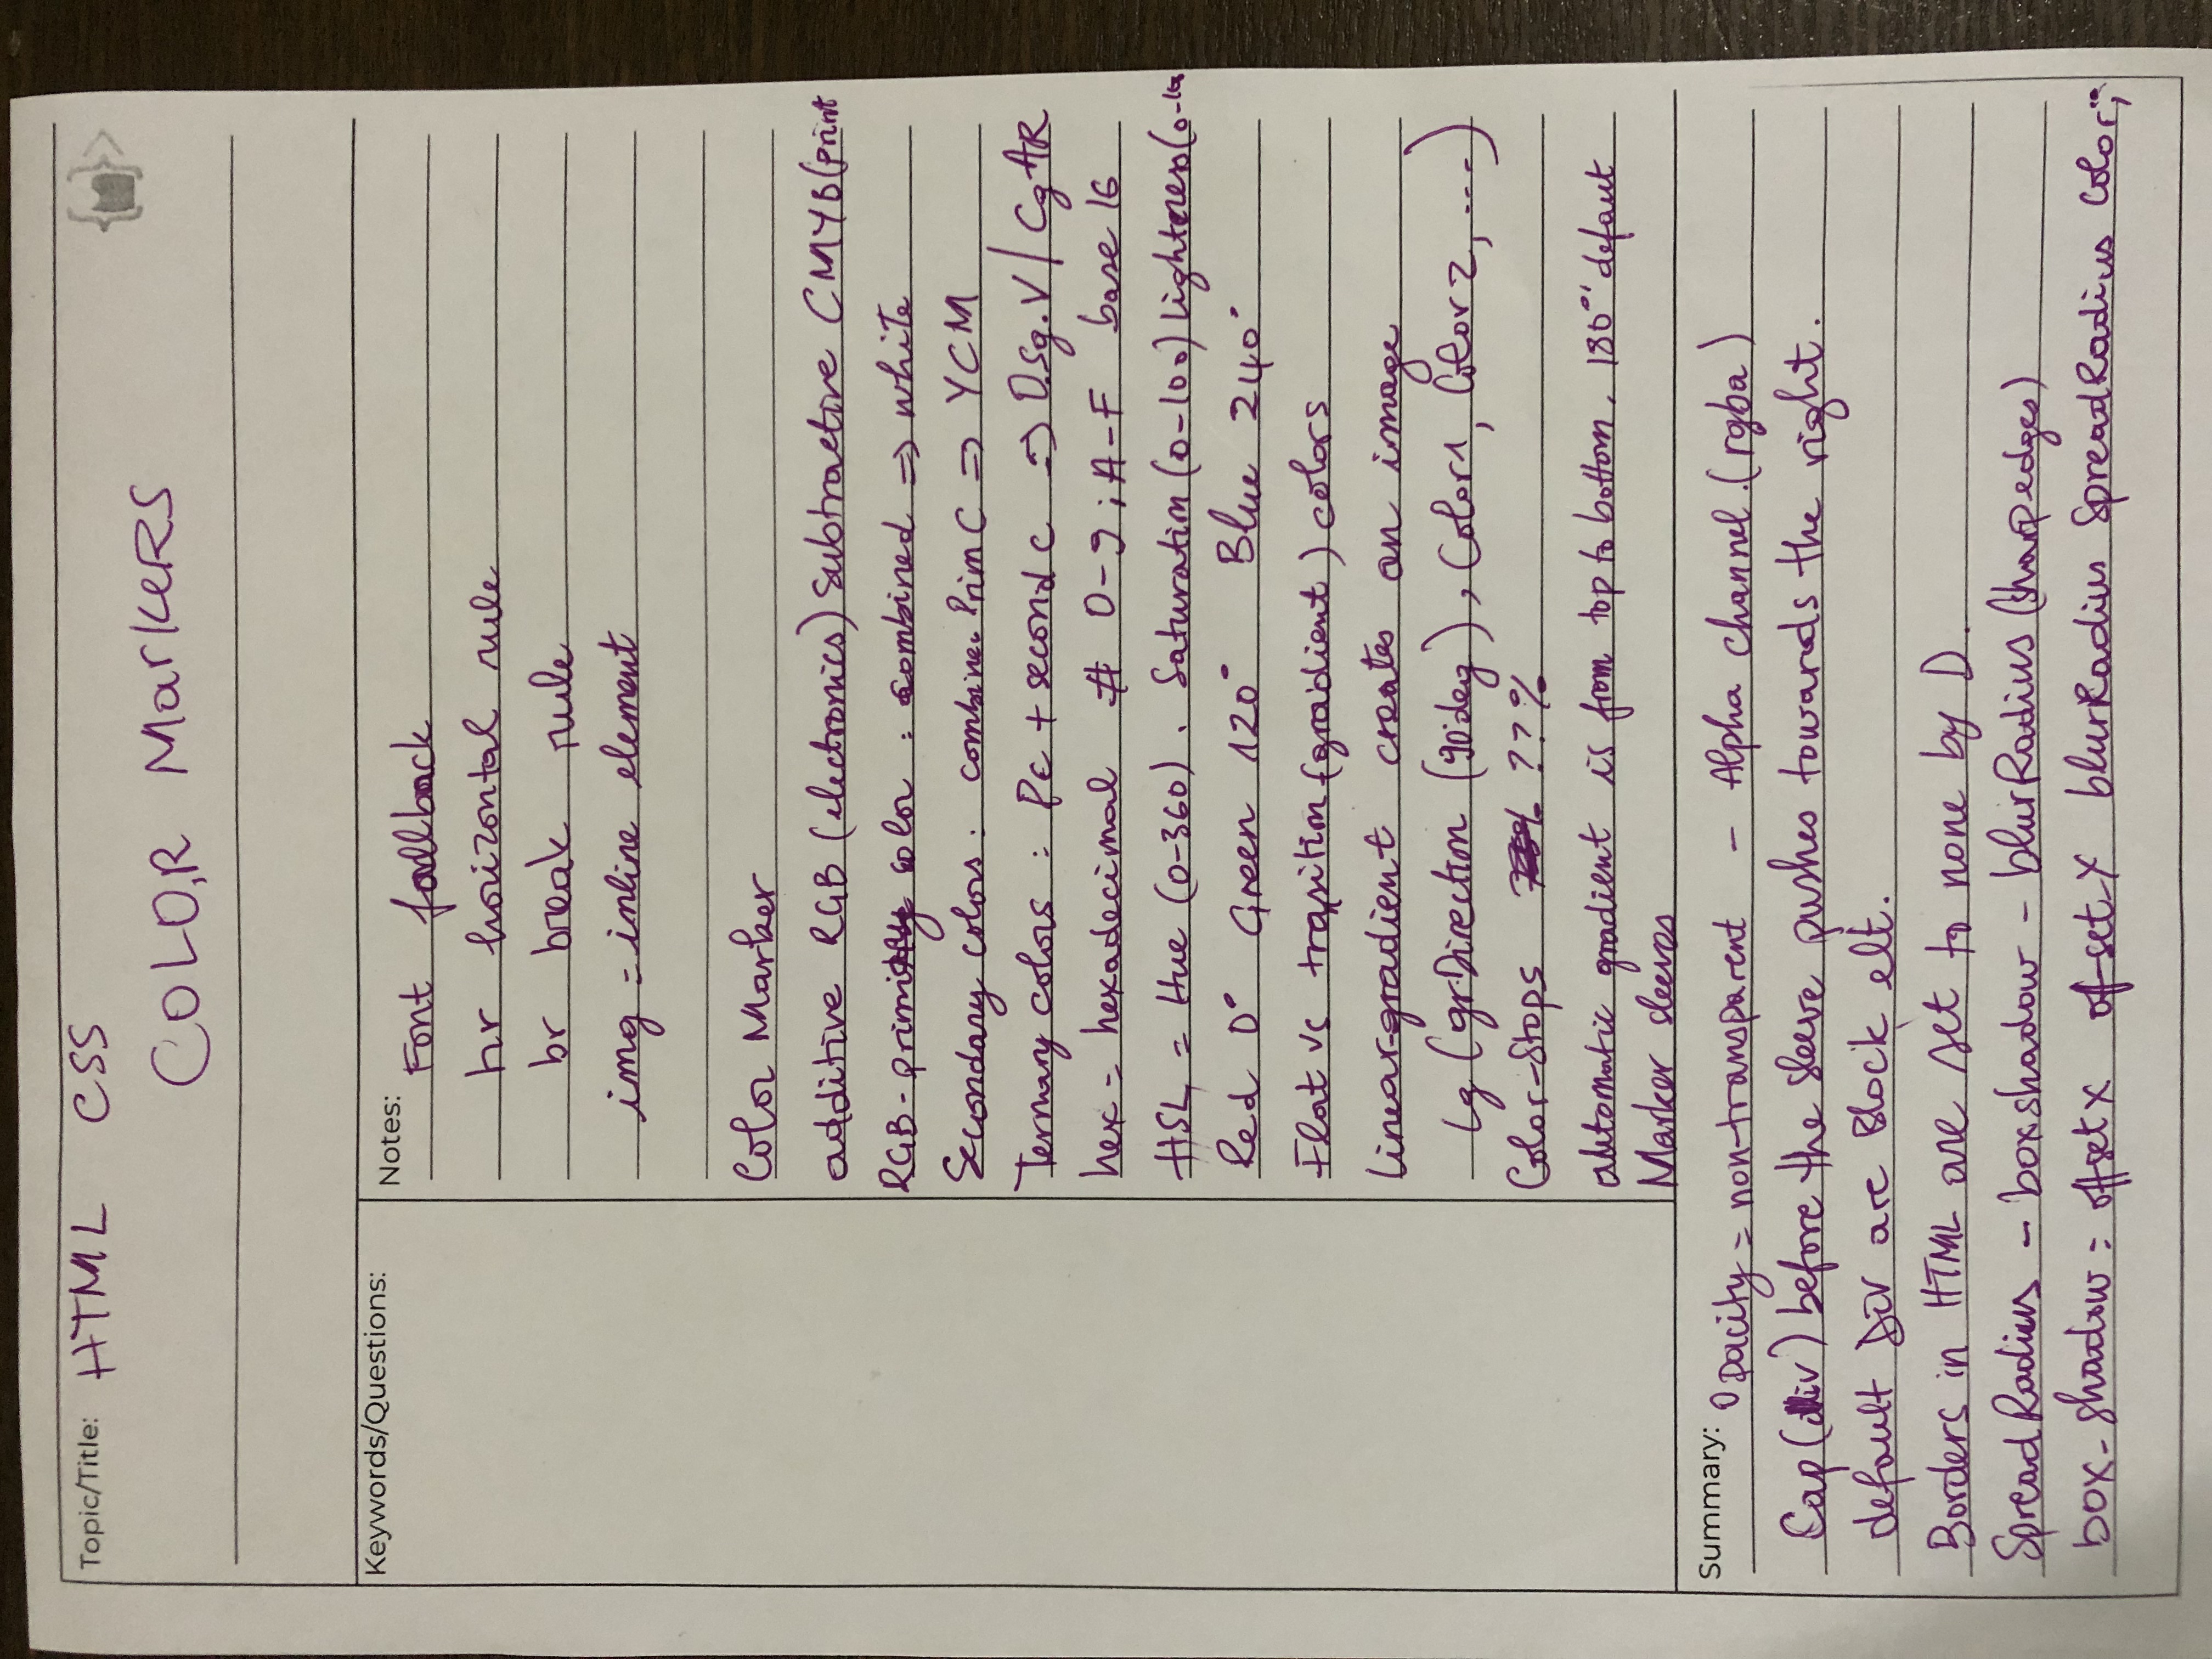 Topic/Title: HTML CSS
COLOR MarKeRS
Keywords/Questions:
Notes:
Font fallback
hr horizontal rule
br break rule
img = inline element
Color Marker
additive RGB (electronics) Subtractive CMYB (print
RGB - primary color : combined => white
Secondary colors : combine Prim C => YCM
Ternary colors : Pc + second c => O.Sg.V / CgAR
hex = hexadecimal # 0-9 ; A-F base 16
HSL = Hue (0-360) . Saturation (0-100) lightness (0-100
Red 0° Green 120° Blue 240°
Flat vs trasition (gradient) colors
linear-gradient creates an image
Lg (gr.Direction (90deg), Color1, Color2, ...)
Color-Stops ??%
automatic gradient is from top to bottom. 180° defaut
Marker sleeves
Summary: Opacity = non-transparent - Alpha channel. (rgba)
Cap (div) before the sleeve pushes towards the right.
default Div are Block elt.
Borders in HTML are set to none by D.
Spread Radius - boxshadow - blurRadius (sharp edges)
box-shadow : offsetX off-set-Y blurRadius SpreadRadius Color;